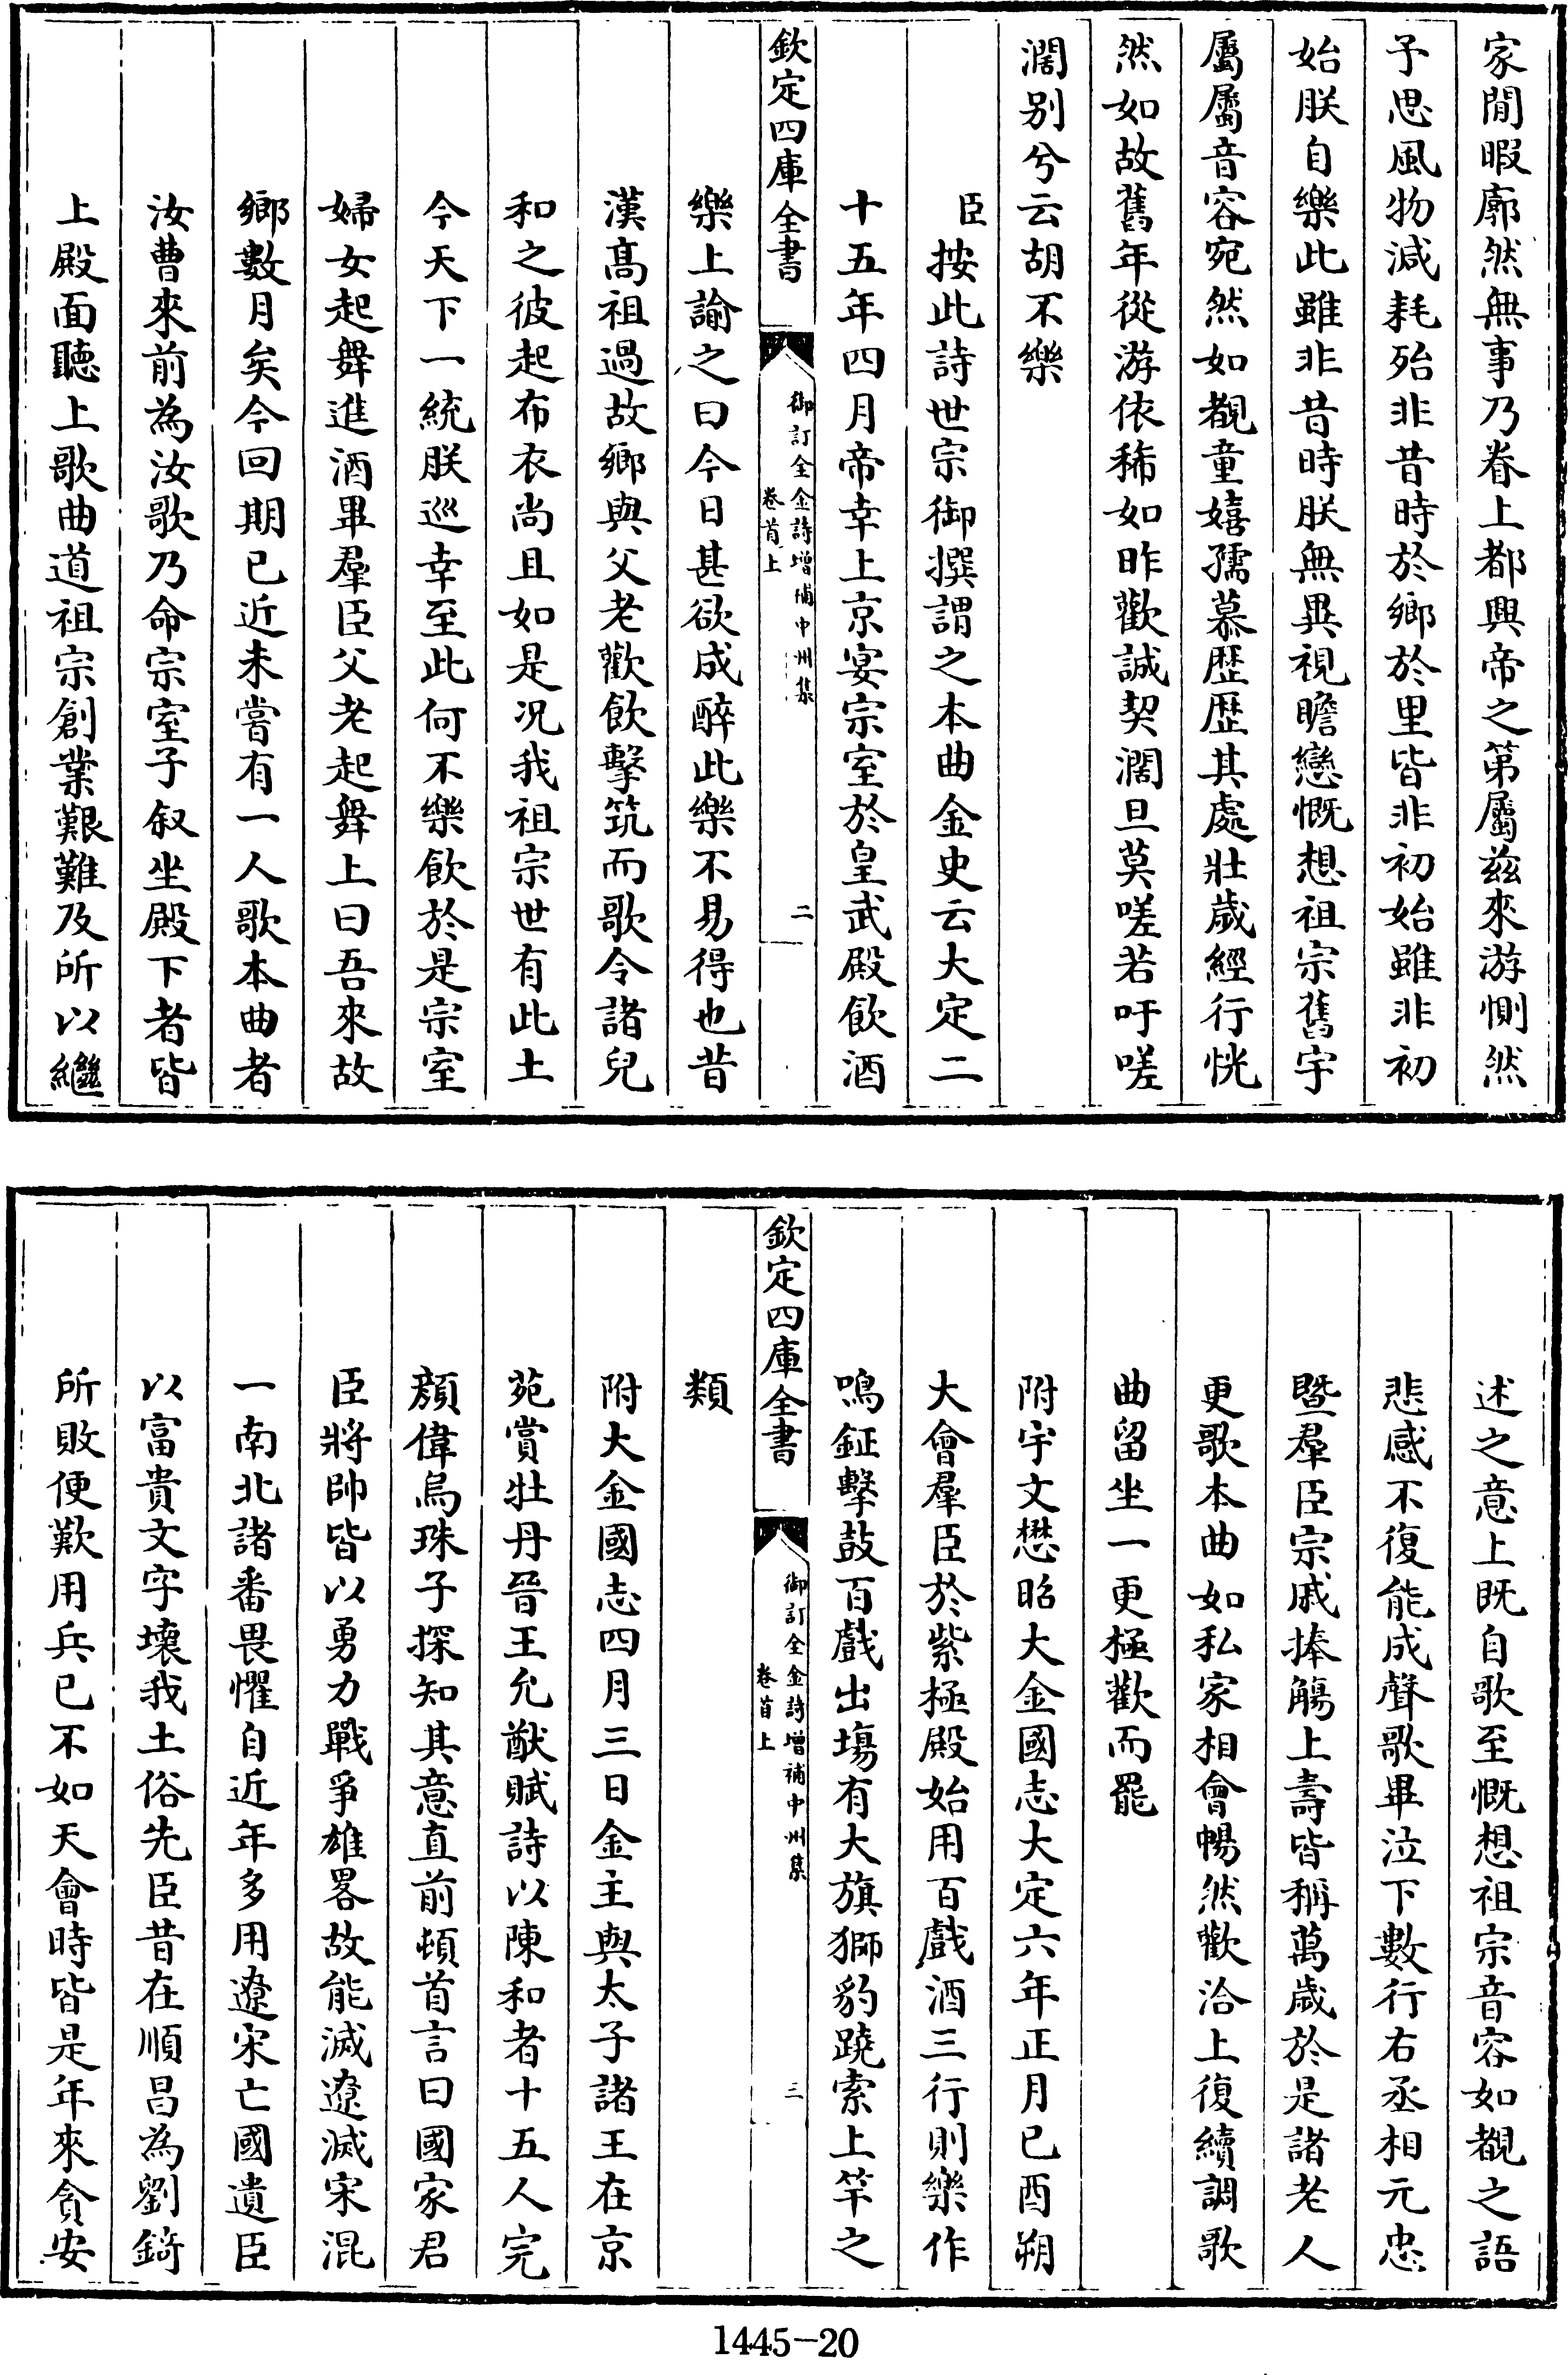 家閒暇廓然無事乃眷上都興帝之第屬兹來游惻然
予思風物減耗殆非昔時於鄉於里皆非初始雖非初
始朕自樂此雖非昔時朕無異視瞻戀慨想祖宗舊宇
屬屬音容宛然如覩童嬉孺慕歴歴其處壯歲經行恍
然如故舊年從游依稀如昨歡誠契濶旦莫嗟若吁嗟
濶别兮云胡不樂
臣按此詩世宗御撰謂之本曲金史云大定二
十五年四月帝幸上京宴宗室於皇武殿飲酒
欽定四庫全書
御訂全金詩增補中州集
卷首上
二
樂上諭之曰今日甚欲成醉此樂不易得也昔
漢髙祖過故鄉與父老歡飲擊筑而歌令諸兒
和之彼起布衣尚且如是况我祖宗世有此土
今天下一統朕巡幸至此何不樂飲於是宗室
婦女起舞進酒畢羣臣父老起舞上曰吾來故
鄉數月矣今回期已近未嘗有一人歌本曲者
汝曹來前為汝歌乃命宗室子叙坐殿下者皆
上殿面聽上歌曲道祖宗創業艱難及所以繼
述之意上既自歌至慨想祖宗音容如覩之語
悲感不復能成聲歌畢泣下數行右丞相元忠
暨羣臣宗戚捧觴上壽皆稱萬歲於是諸老人
更歌本曲如私家相會暢然歡洽上復續調歌
曲留坐一更極歡而罷
附宇文懋昭大金國志大定六年正月已酉朔
大會羣臣於紫極殿始用百戲酒三行則樂作
鳴鉦擊鼓百戲出塲有大旗獅豹蹺索上竿之
欽定四庫全書
御訂全金詩增補中州集
卷首上
三
類
附大金國志四月三日金主與太子諸王在京
苑賞牡丹晉王允猷賦詩以陳和者十五人完
顔偉烏珠子探知其意直前頓首言曰國家君
臣將帥皆以勇力戰爭雄畧故能滅遼滅宋混
一南北諸番畏懼自近年多用遼宋亡國遺臣
以富貴文字壞我土俗先臣昔在順昌為劉錡
所敗便歎用兵已不如天會時皆是年來貪安
1445-20